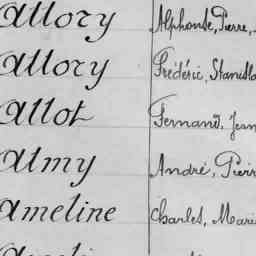 Allory Alphonse, Pierre,
Allory Frédéric, Stanisla
Allot Fernand, Jean
Almy André, Pierr
Ameline Charles, Mari